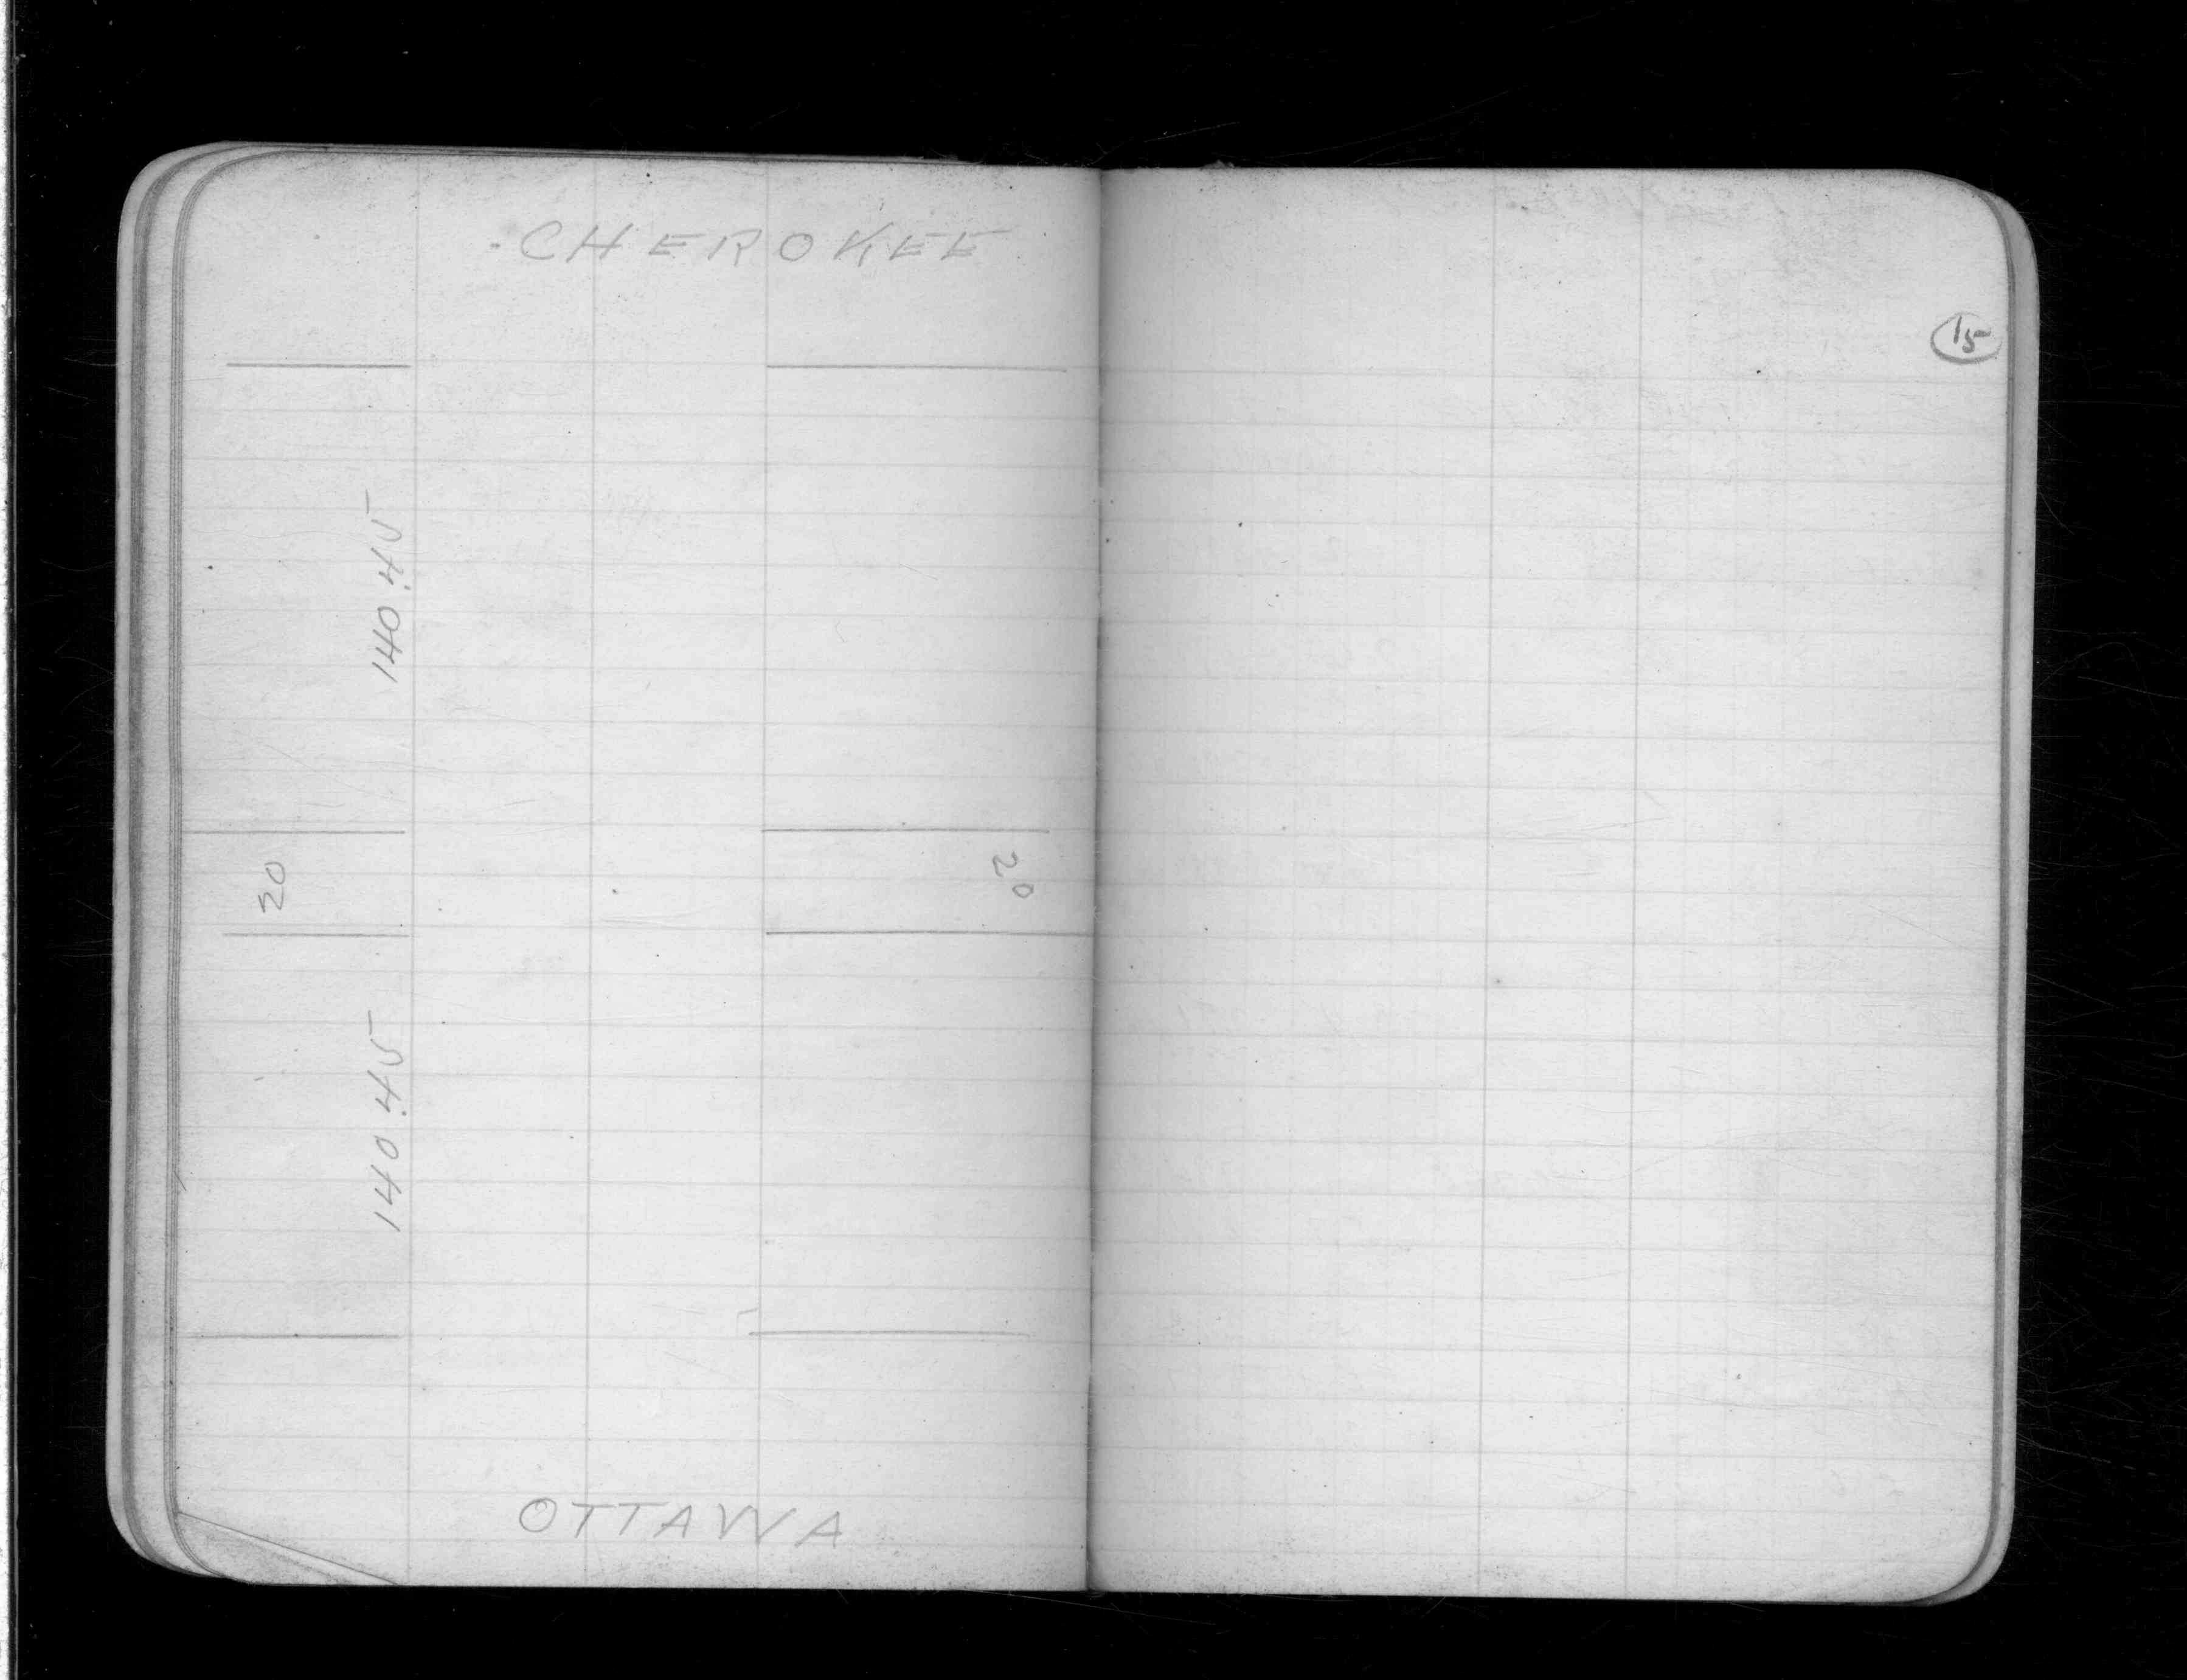 CHEROKEE
15
140.45
20
20
140.45
OTTAWA